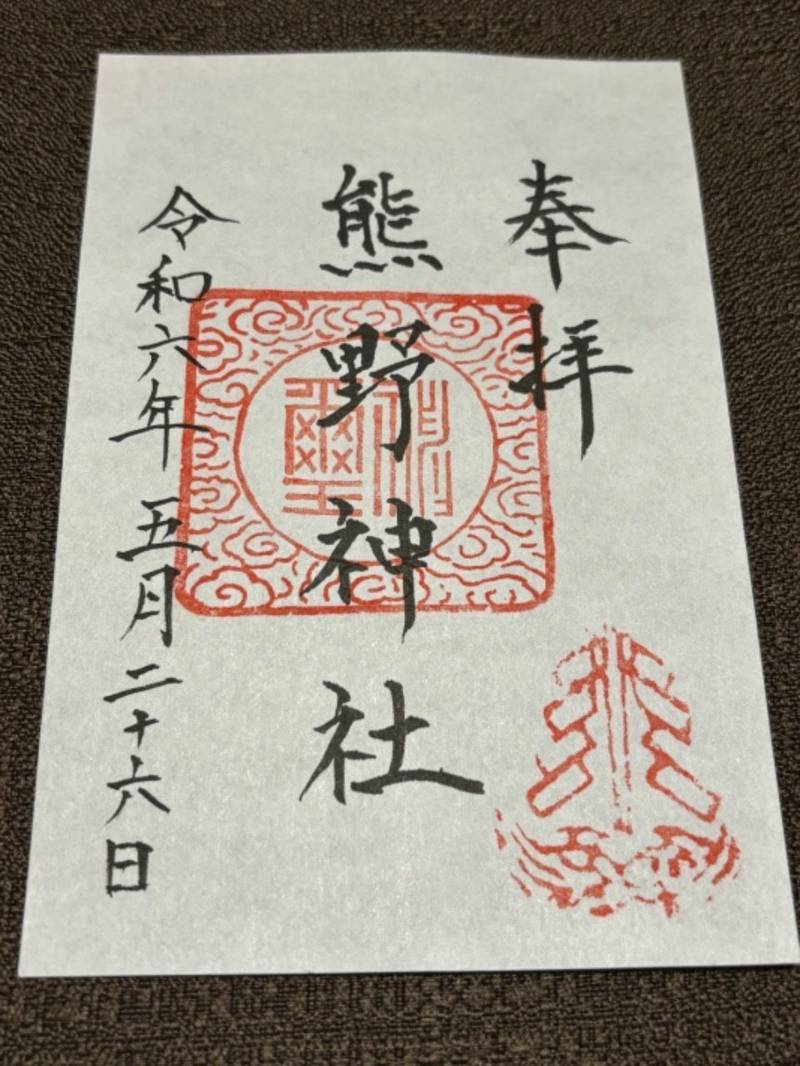 奉拝
熊野神社
令和六年五月二十六日